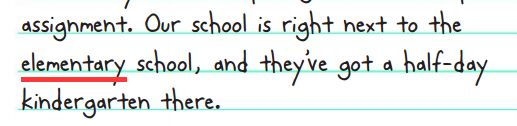 assignment. Our school is right next to the
elementary school, and they've got a half-day
kindergarten there.